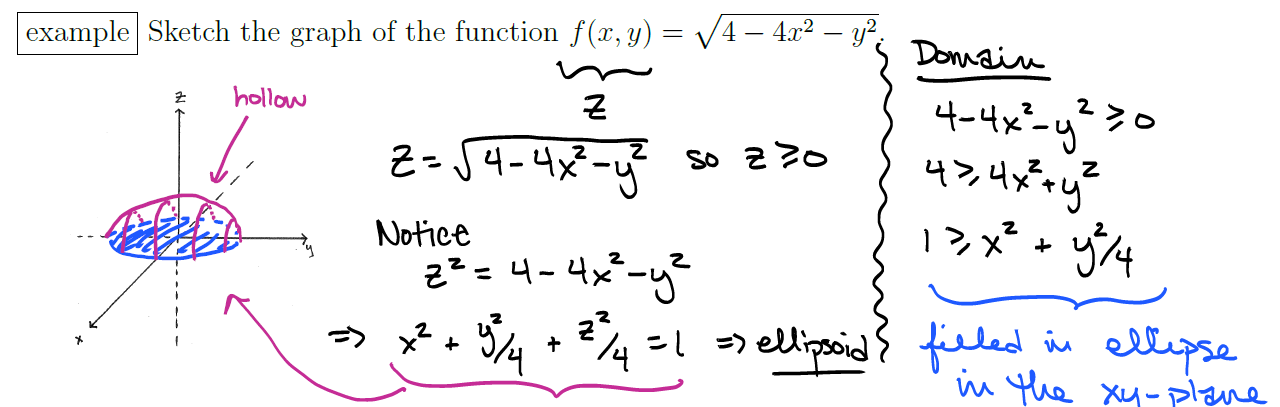 example Sketch the graph of the function f(x, y) = √(4 − 4x² − y²).
z
hollow
z
y
x
z = √(4-4x²-y²) so z ≥ 0
Notice
z² = 4 - 4x² - y²
⇒ x² + y²/4 + z²/4 = 1 ⇒ ellipsoid
Domain
4-4x²-y² ≥ 0
4 ≥ 4x²+y²
1 ≥ x² + y²/4
filled in ellipse
in the xy-plane